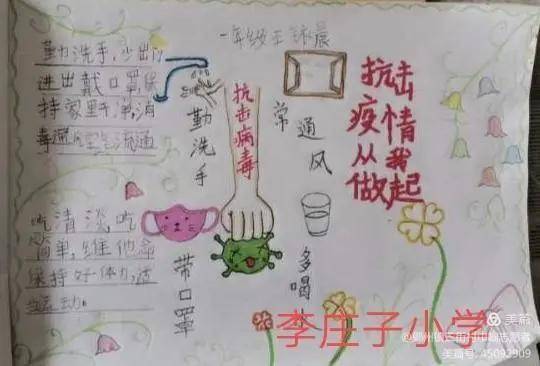 一年级王
勤洗手，少出门
进出戴口罩，保
持家里干净，消
毒通风空气流通
吃清淡，吃
简单，维他命
保持好体力，适
当运动。
勤洗手
抗击病毒
常通风
带口罩
多喝
抗击
疫情
从我
做起
李庄子小学
美篇
美篇号：45092909